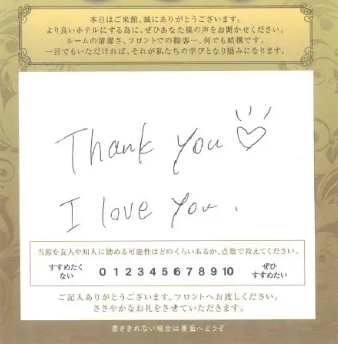 本日はご来館、誠にありがとうございます。
より良いホテルにする為に、ぜひあなた様の声をお聞かせください。
ルームの清潔さ、フロントでの接客…、何でも結構です。
一言でもいただければ、それが私たちの学びとなり励みになります。
Thank you ♡
I love you.
当館を友人や知人に勧める可能性はどのくらいあるか、点数で教えてください。
すすめたく
ない
0 1 2 3 4 5 6 7 8 9 10
ぜひ
すすめたい
ご記入ありがとうございます。フロントへお渡しください。
ささやかなお礼をさせていただきます。
書ききれない場合は裏面へどうぞ